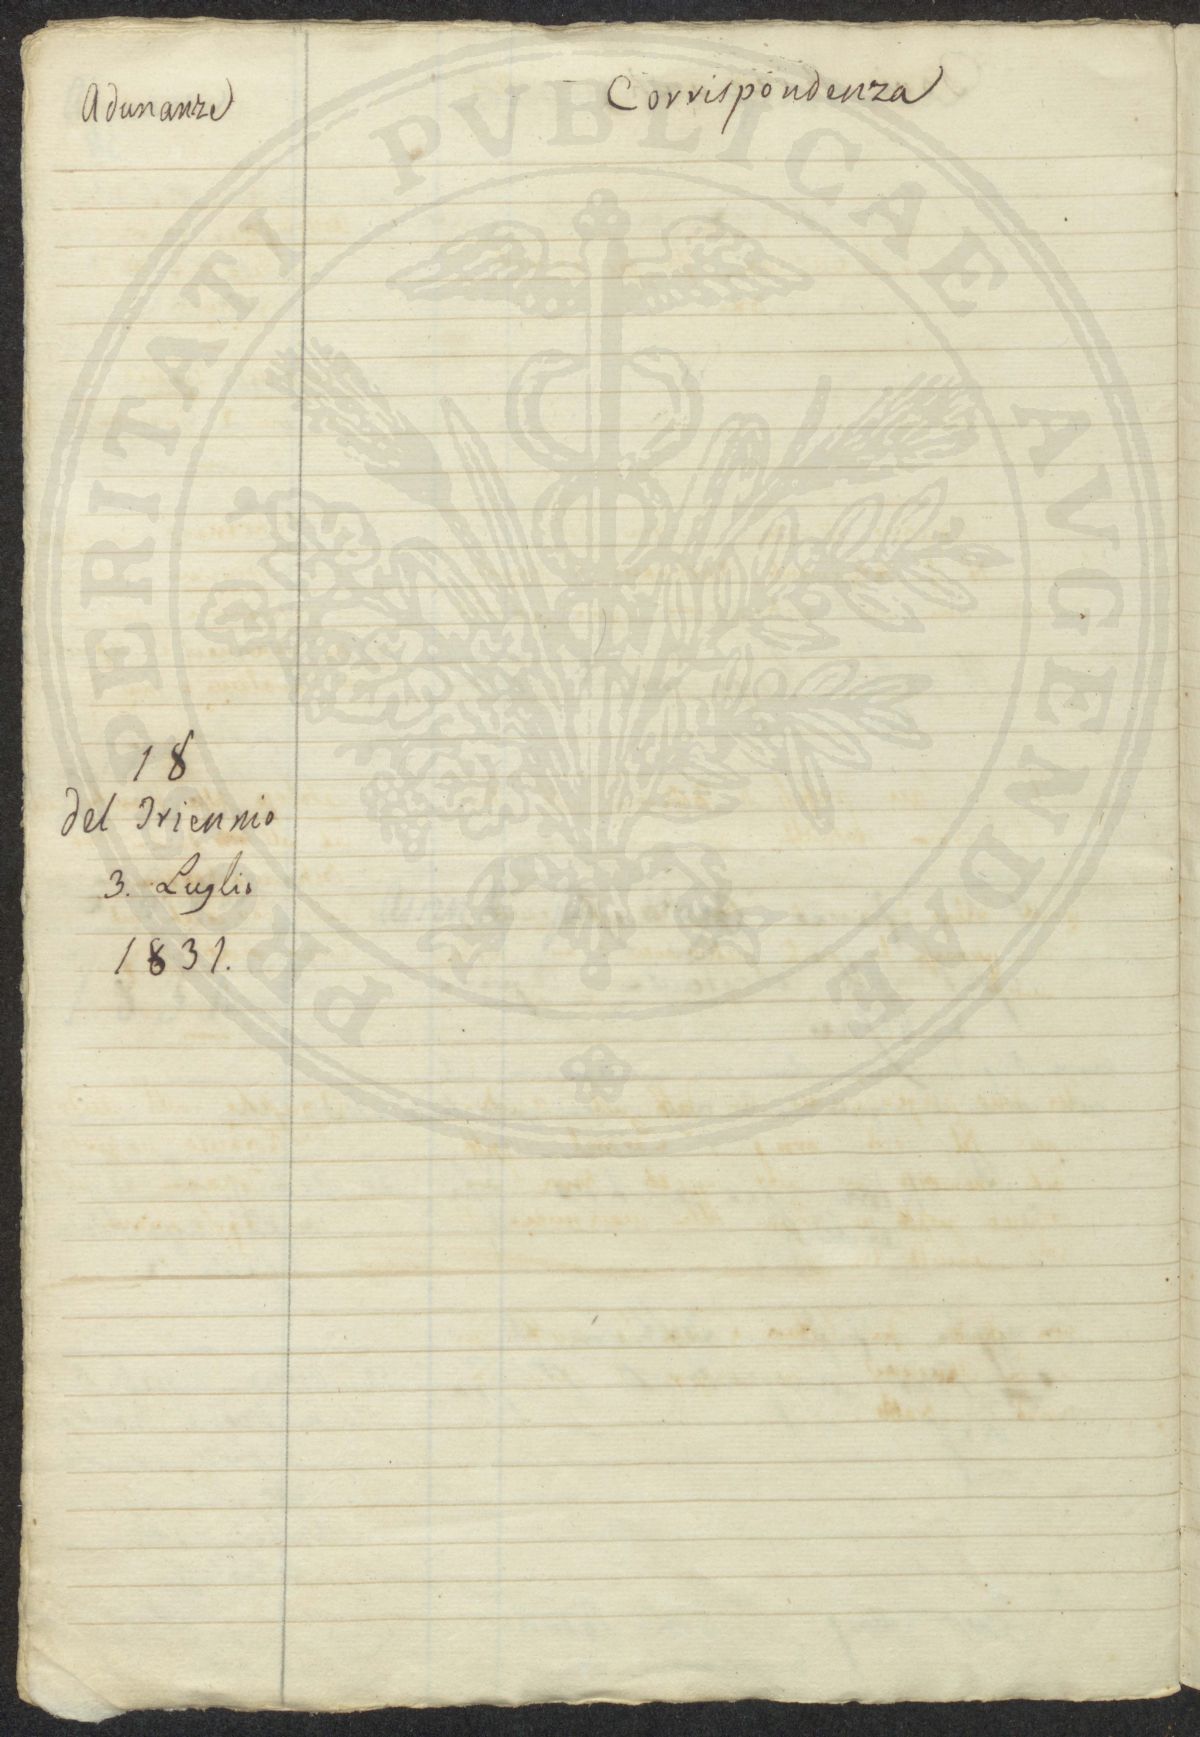 Adunanze
Corrispondenza
18
del Triennio
3. Luglio
1831.
PROSPERITATI PVBLICAE AVGENDAE